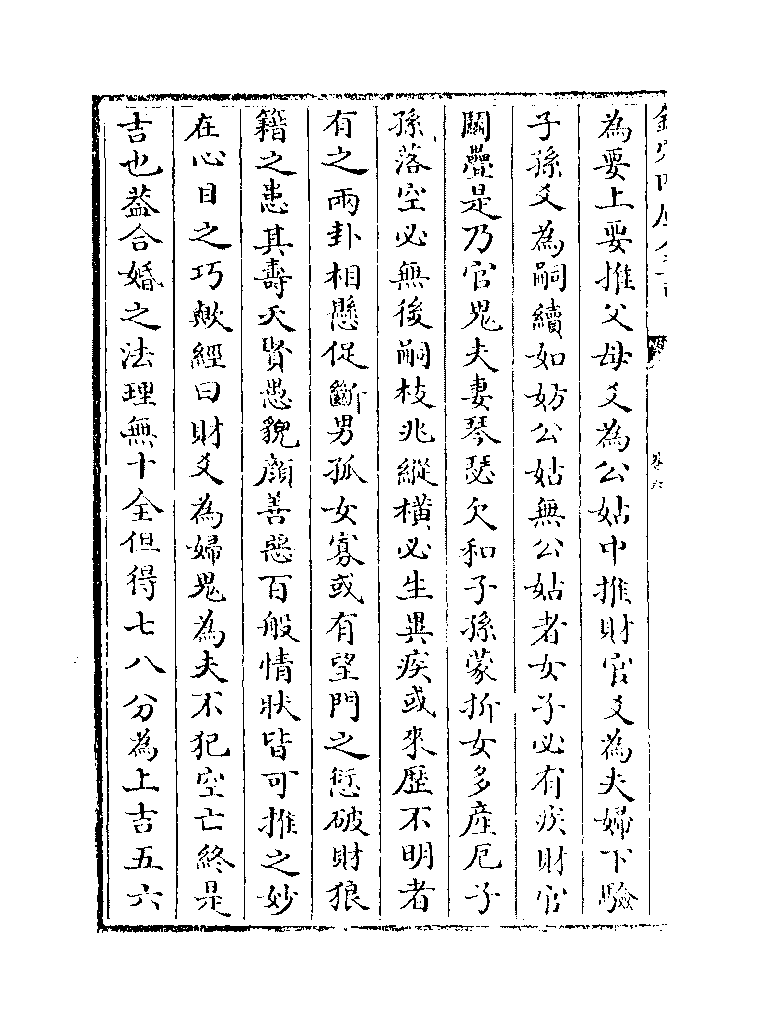 為要上要推父母爻為公姑中推財官爻為夫婦下驗
子孫爻為嗣續如妨公姑無公姑者女子必有疾財官
關疊是乃官鬼夫妻琴瑟欠和子孫蒙折女多產厄子
孫落空必無後嗣枝兆縱橫必生異疾或來歷不明者
有之兩卦相懸促斷男孤女寡或有望門之愆破財狼
籍之患其壽夭賢愚貌顔善惡百般情狀皆可推之妙
在心目之巧歟經曰財爻為婦鬼為夫不犯空亡終是
吉也葢合婚之法理無十全但得七八分為上吉五六